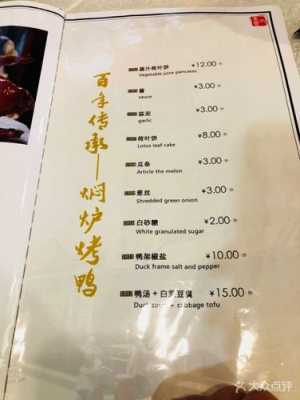 百年传承—焖炉烤鸭
蔬汁荷叶饼 ¥12.00
Vegetable juice pancakes
酱 ¥3.00
sauce
蒜泥 ¥3.00
garlic
荷叶饼 ¥8.00
Lotus leaf cake
瓜条 ¥3.00
Article the melon
葱丝 ¥3.00
Shredded green onion
白砂糖 ¥2.00
White granulated sugar
鸭架椒盐 ¥10.00
Duck frame salt and pepper
鸭汤+白菜豆腐 ¥15.00
Duck soup + cabbage tofu
大众点评